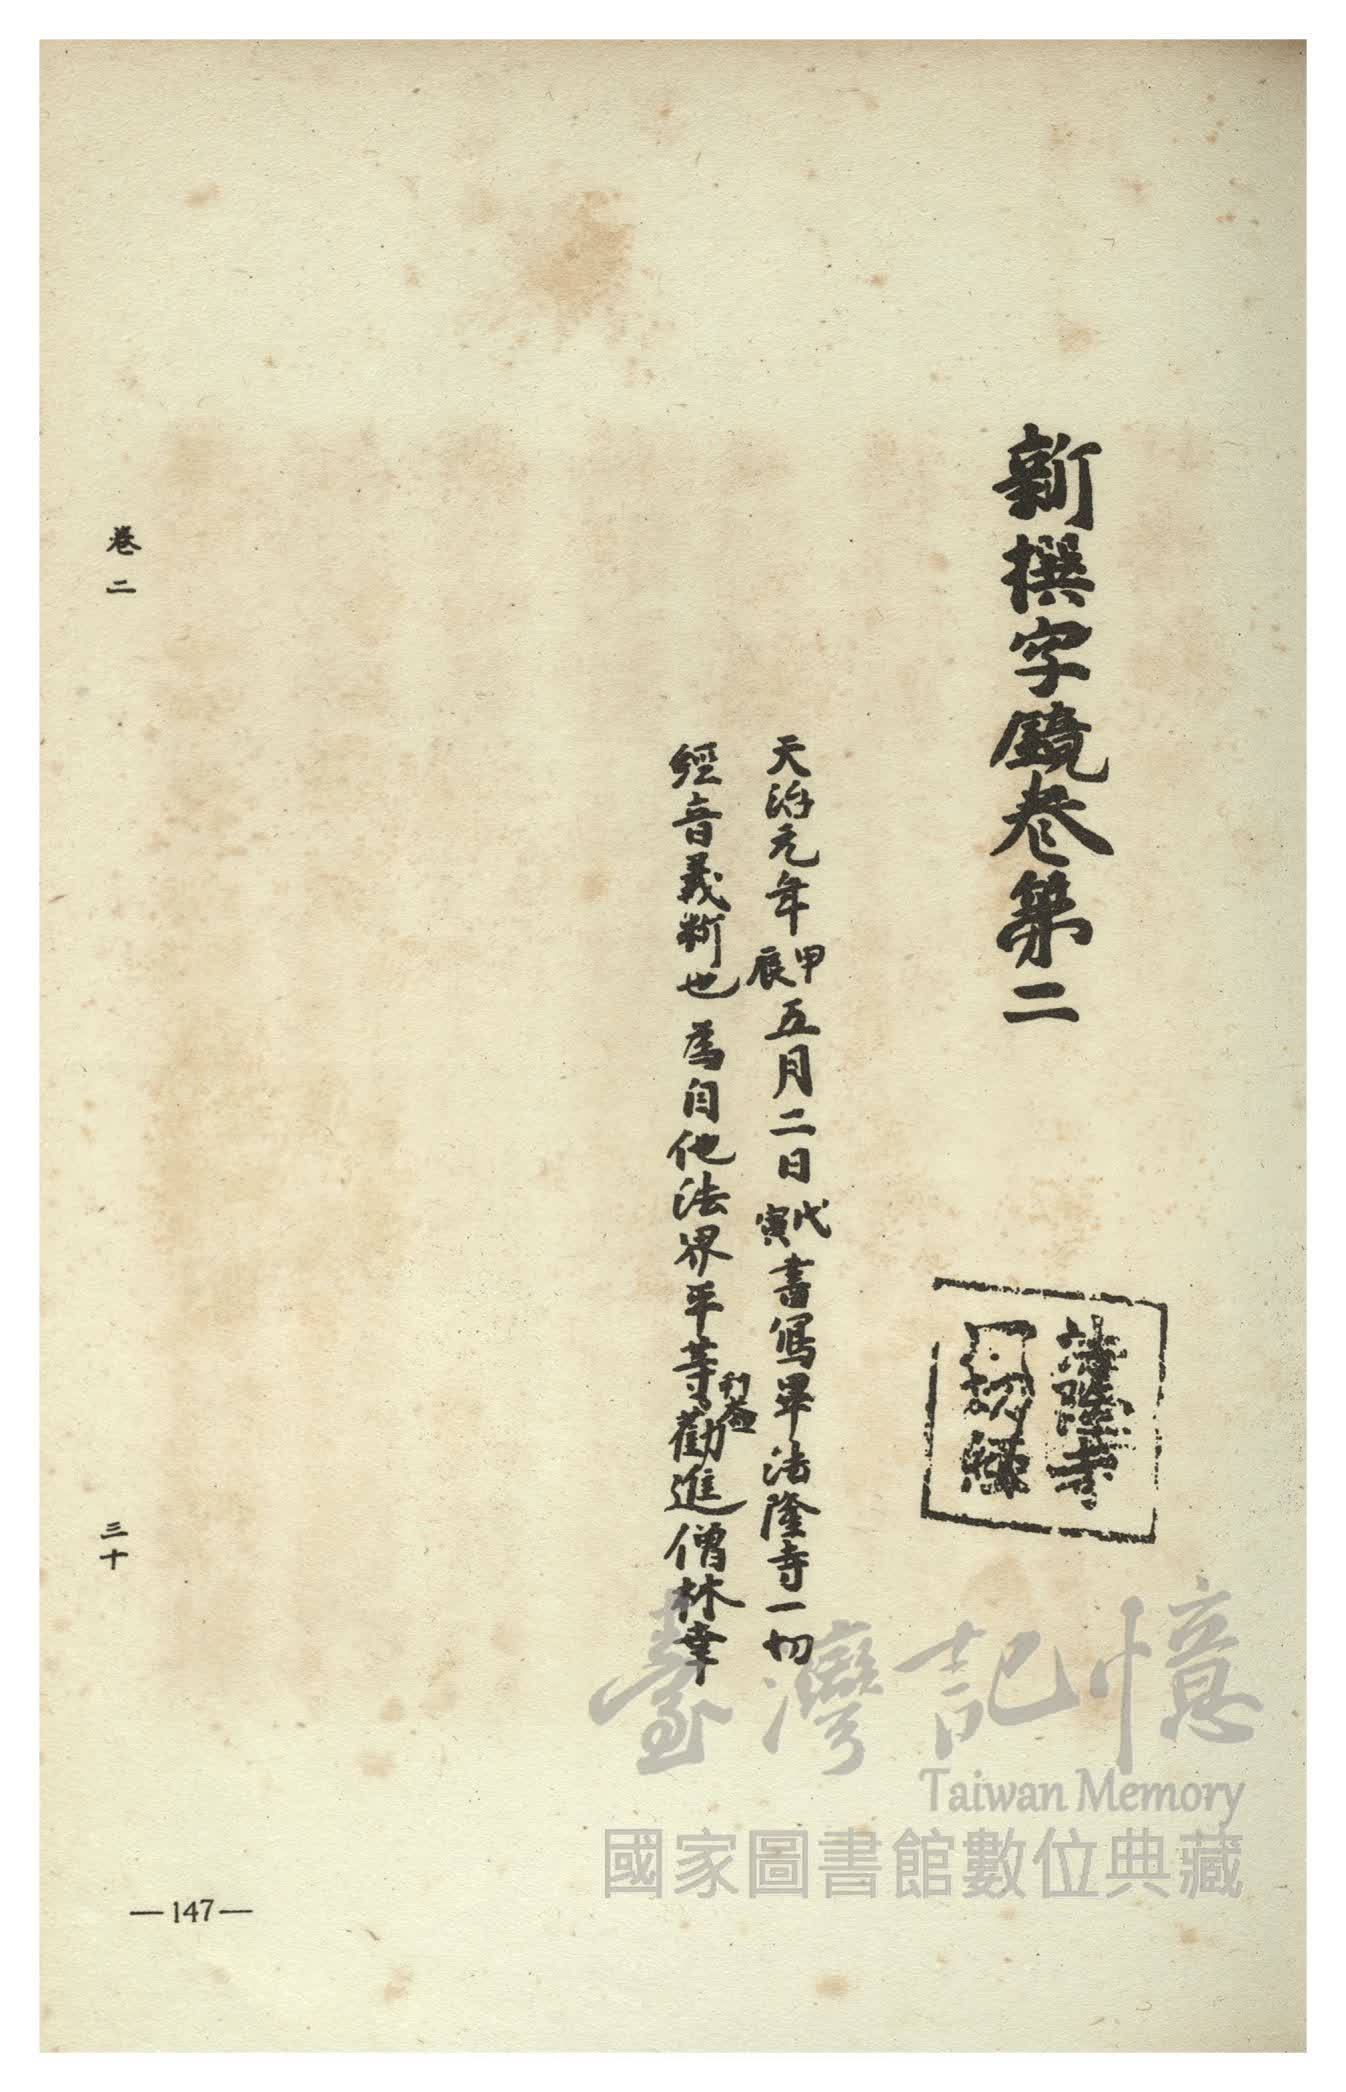 新撰字鏡卷第二
法隆寺
一切經
天治元年甲辰五月二日戊寅書寫畢法隆寺一切
經音義料也為自他法界平等利益勸進僧林幸
卷二
三十
—147—
臺灣記憶
Taiwan Memory
國家圖書館數位典藏